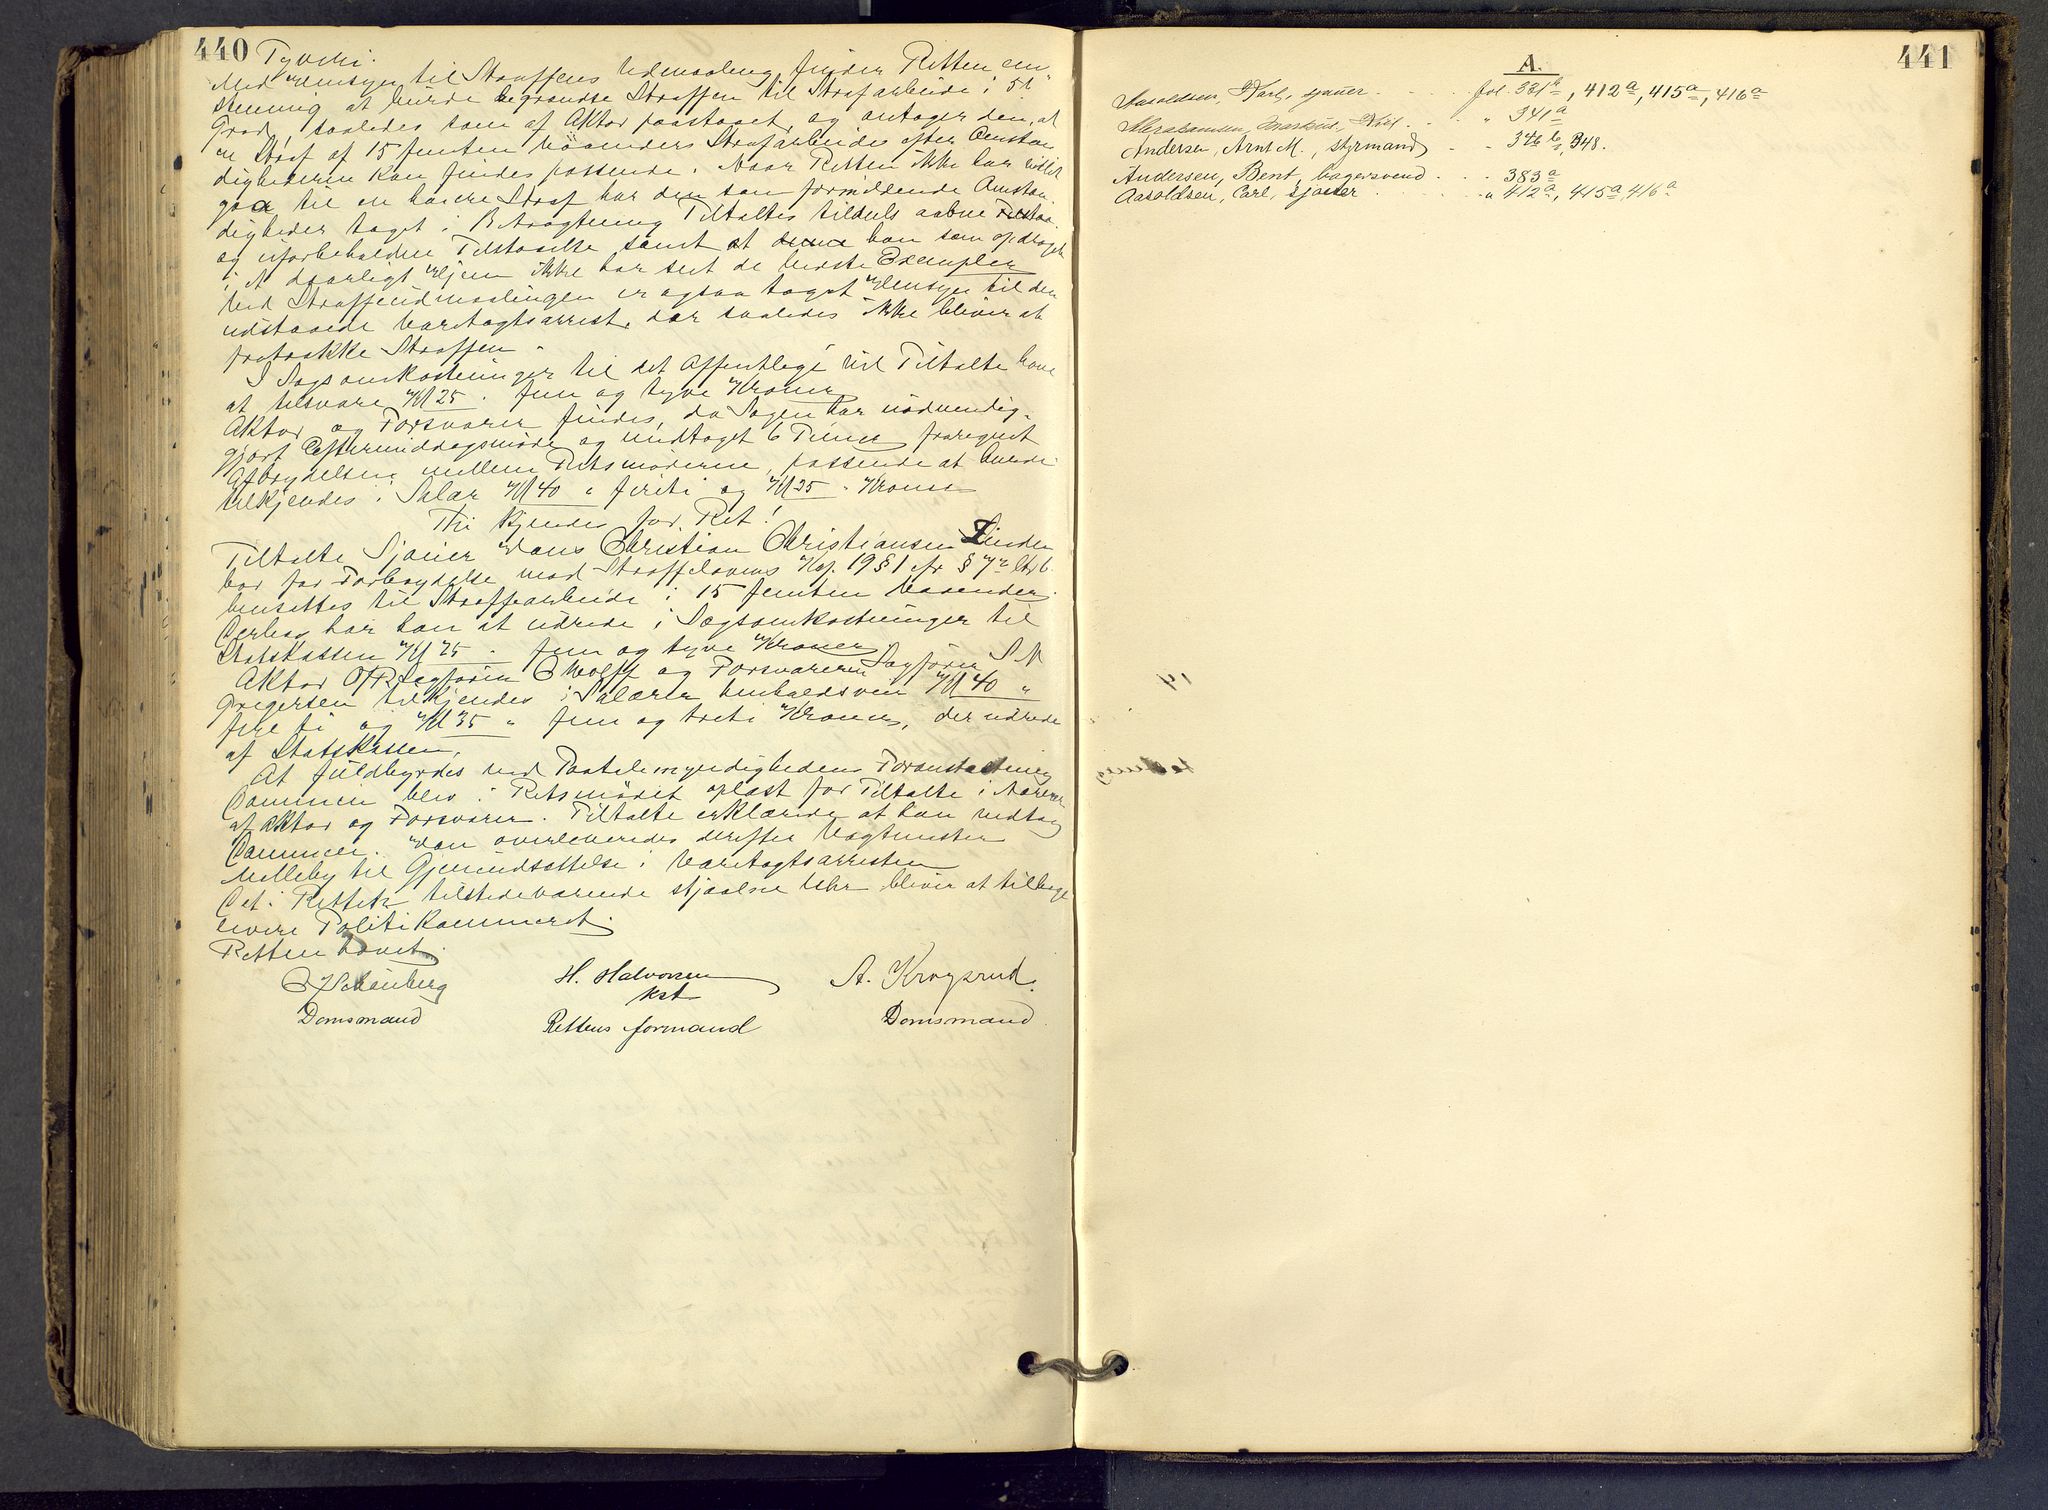 440
Tyveri.
Med Hensyn til Straffens Udmaaling finder Retten em
stemmig at burde begrændse Straffen til Strafarbeide i 5te
Grad, saaledes som af Aktor paastaaet, og antager den, at
en Straf af 15 femten Maaneders Strafarbeide efter Omstæn
dighederne kan findes passende. Naar Retten ikke har villet
gaa til en høiere Straf har den som formildende Omstæn
digheder taget i Betragtning Tiltaltes tildels aabne
og uforbeholdne Tilstaaelse samt at han som opdraget
i et daarligt Hjem ikke har seet de bedste Exempler
Ved Straffeudmaalingen er ogsaa taget Hensyn til den
udstaaede Varetægtsarrest, der saaledes ikke bliver at
fratrække Straffen.
I Sagsomkostninger til det Offentlige vil Tiltalte have
at tilsvare Kr 25 . fem og tyve Kroner
Aktor og Forsvarer findes, da Sagen har nødvendig-
gjort Eftermiddagsmøde og medtaget 6 Timer fraregnet
Afbrydelsen mellem Retsmøderne, passende at burde
tilkjendes i Salær Kr 40 " firti og Kr 35 . Kroner
Thi kjendes for Ret!
Tiltalte Sjauer Hans Christian Christiansen Linder
bør for Forbrydelse mod Straffelovens Kap. 19 § 1 cfr § 7 litr b.
hensættes til Strafarbeide i 15 femten Maaneder.
Derhos bør han at udrede i Sagsomkostninger til
Statskassen Kr 25 . fem og tyve Kroner
Aktor O/R Sagfører E Wolff og Forsvareren Sagfører S M
Gregersen tilkjendes i Salærer henholdsvis Kr 40 "
fire ti og Kr 35 " fem og treti Kroner, der udrede
af Statskassen.
At fuldbyrdes ved Paatalemyndighedens Foranstaltning
Dommen blev i Retsmødet oplæst for Tiltalte i Nærvær
af Aktor og Forsvarer. Tiltalte erklærede at han vedtog
Dommen. Han overleveredes derefter Vagtmester
Melleby til Gjenindsættelse i Varetægtsarresten
Det i Retten tilstedeværende stjaalne Uhr bliver at tilbage
levere Politikammeret.
Retten hævet.
H. Halvorsen
kst
A. Krogsrud.
Domsmand
Rettens formand
Domsmand
441
A.
Aasoldsen, Karl, sjauer . . . . . fol. 331 b, 412 a, 415 a, 416 a
Abrahamsen, Markus, . . . " 341 a
Andersen, Arnt M., styrmand . - 346 b, 348.
Andersen, Bent, bagersvend . . . - 383 a
Aasoldsen, Carl, sjauer . . . . . " 412 a, 415 a, 416 a